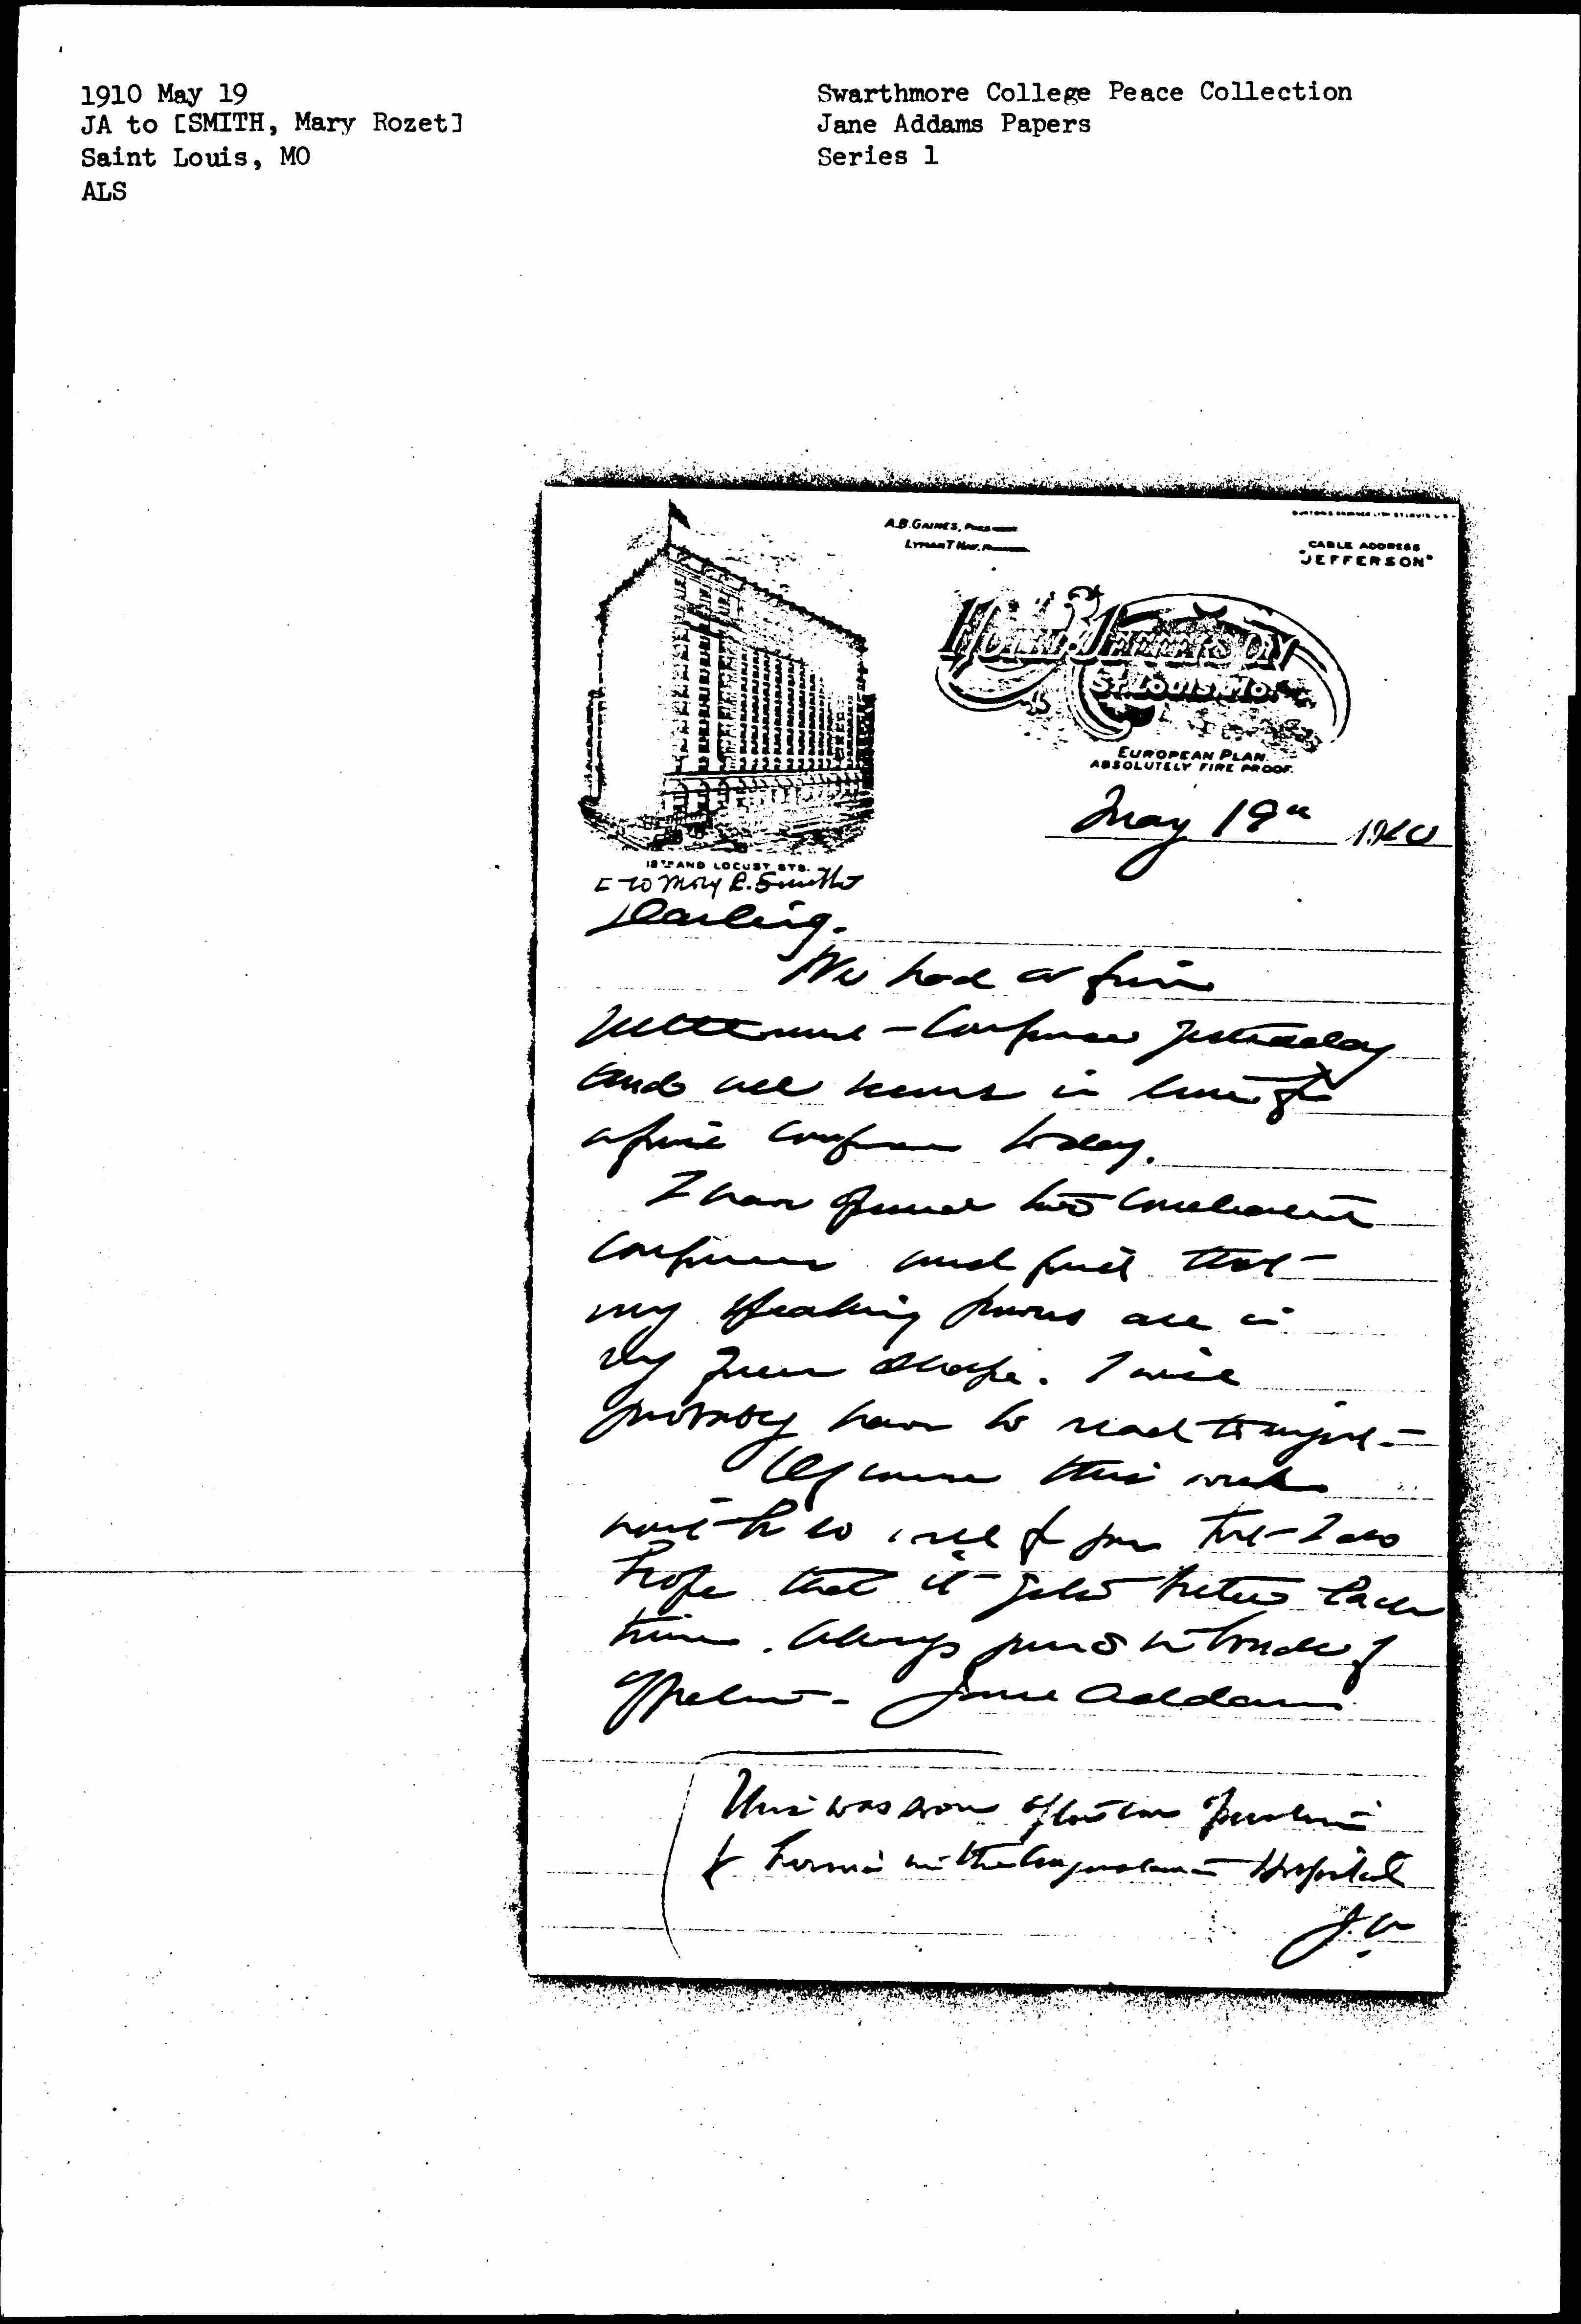 1910 May 19
JA to [SMITH, Mary Rozet]
Saint Louis, MO
ALS
Swarthmore College Peace Collection
Jane Addams Papers
Series 1
A.B. GAINES, PRESIDENT
LYMAN T. HAY,
CABLE ADDRESS
"JEFFERSON"
HOTEL JEFFERSON
ST. LOUIS, MO.
EUROPEAN PLAN.
ABSOLUTELY FIRE PROOF.
May 19th 1910
12TH AND LOCUST STS.
[to Mary R. Smith]
Darling.
We had a fine
settlement - Conference yesterday
and all seems in line for
a fine conference today.
I have opened two
conferences and find that
my speaking powers are in
very poor shape. I will
probably have to read tonight -
Of course this week
won't be so well for you but I do
hope that it gets better each
time. Always yours
Jane Addams
This was
in the Hospital
J.A.